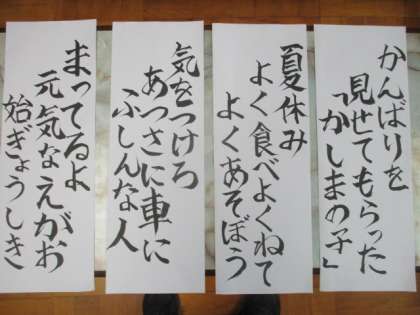 がんばりを
見せてもらった
「かしまの子」
夏休み
よく食べよくねて
よくあそぼう
気をつけろ
あつさに車に
ふしんな人
まってるよ
元気なえがお
始ぎょうしき